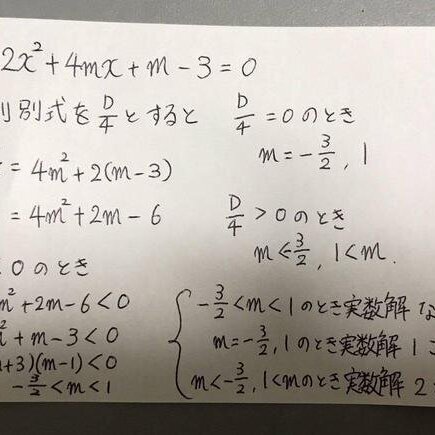 2x²+4mx+m-3=0
別式をD/4とすると
= 4m²+2(m-3)
= 4m²+2m-6
0のとき
m²+2m-6<0
m²+m-3<0
+3)(m-1)<0
-3/2<m<1
D/4=0のとき
m=-3/2, 1
D/4>0のとき
m<-3/2, 1<m.
-3/2<m<1のとき実数解な
m=-3/2, 1のとき実数解1
m<-3/2, 1<mのとき実数解2